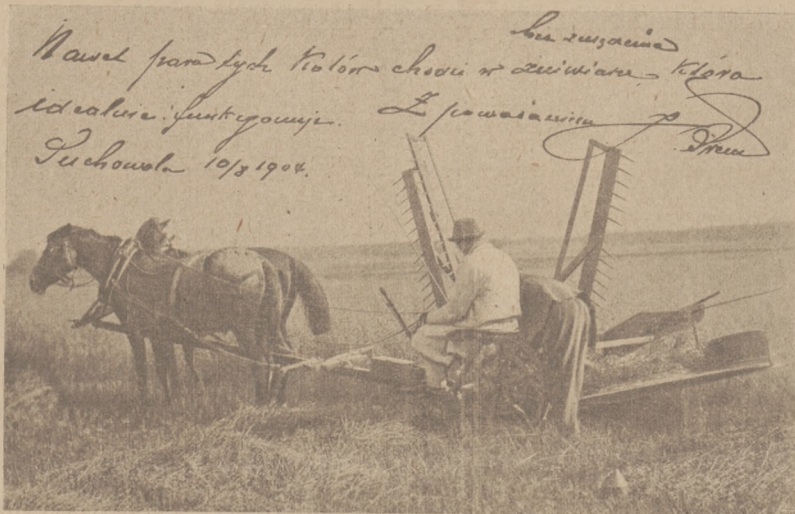 bez zmęczenia
Nawet para tych kotów chodzi w żniwiarce, która
idealnie funkcyonuje. Z poważaniem
Suchowola 10/8 1904.